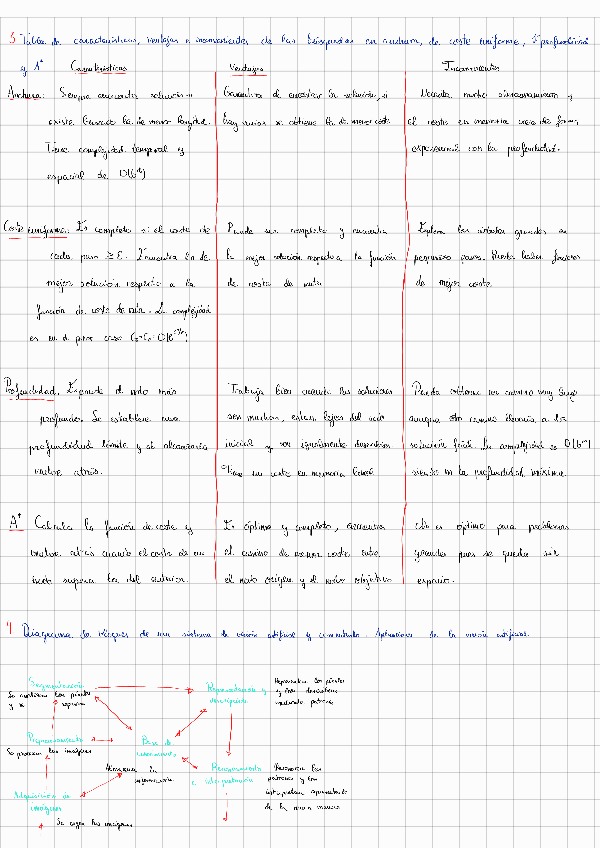 3 Tabla de características, ventajas e inconvenientes de las búsquedas en anchura, de coste uniforme, profundidad
y A*
Características Ventajas Inconvenientes
Anchura: Siempre encuentra solución si
existe. Encuentra la de menor longitud.
Tiene complejidad temporal y
espacial de
Garantiza de encontrar la solución, si
hay varias se obtiene la de menor coste
Necesita mucho almacenamiento y
el coste en memoria crece de forma
exponencial con la profundidad.
Coste uniforme: Es completo si el coste de
cada paso ≥ E. Encuentra la de
mejor solución respecto a la
función de coste de ruta. La complejidad
es en el peor caso
Puede ser completo y encuentra
la mejor solución respecto a la función
de coste de ruta
Explora los árboles grandes en
pequeños pasos. Puede haber
de mejor coste.
Profundidad. Expande el nodo más
profundo. Se establece una
profundidad límite y al alcanzarla
vuelve atrás.
Trabaja bien cuando las soluciones
son muchas, están lejos del nodo
inicial y son igualmente deseables
Tiene un coste en memoria lineal
Puede obtener un camino muy largo
aunque otro camino llevaría a la
solución fácil. La complejidad es
siendo m la profundidad máxima.
A* Calcula la función de coste y
vuelve atrás cuando el coste de un
nodo supera la del anterior.
Es óptimo y completo, encuentra
el camino de menor coste entre
el nodo origen y el nodo objetivo
No es óptimo para problemas
grandes pues se queda sin
espacio.
4 Diagrama de bloques de un sistema de visión artificial y comentarlo. Aplicaciones de la visión artificial.
Segmentación
Se
y se
Representación y
descripción
Representa los píxeles
y los describe
mediante patrones
Preprocesamiento
Se procesan las imágenes
Base de
conocimiento
Almacena la
información
Reconocimiento
e interpretación
Reconoce los
patrones y los
interpretan
de la misma manera
Adquisición de
imágenes
Se cogen las imágenes